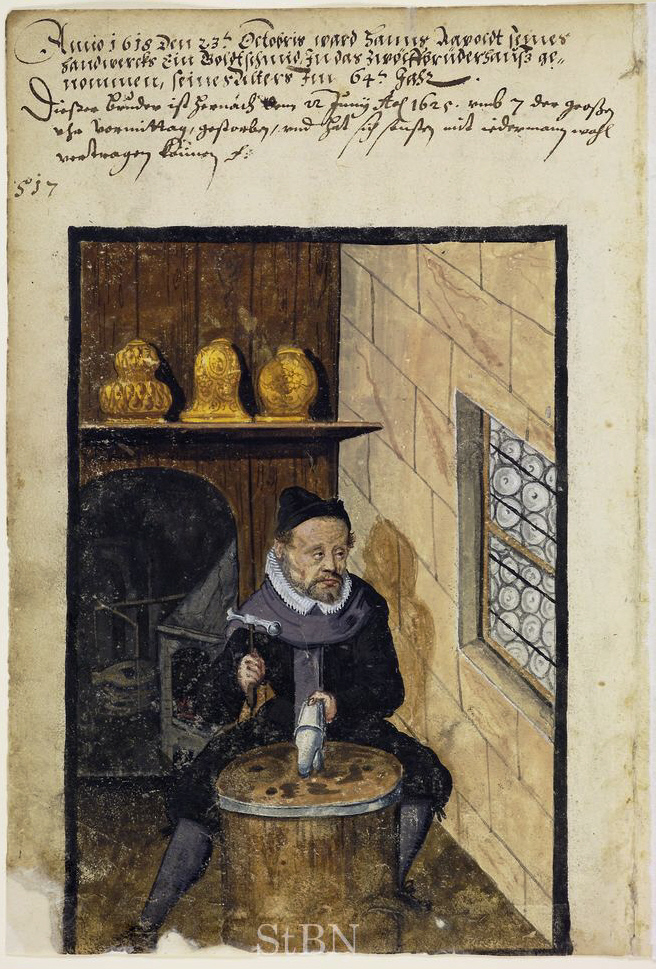 Anno 1618 Den 23ᵗ Octobris ward Hanns seines
handwercks Ein Goldtschmid, In das Zwölffbrüderhauß ge„
nommen, seines Alters Im 64ᵗ Jahr.
Dieser Bruder ist hernach dem 22 Junij Aõ 1625. umb 7 der großen
uhr vormittag, gestorben, und hat sich sonsten mit iederman wohl
vertragen können
517
StBN